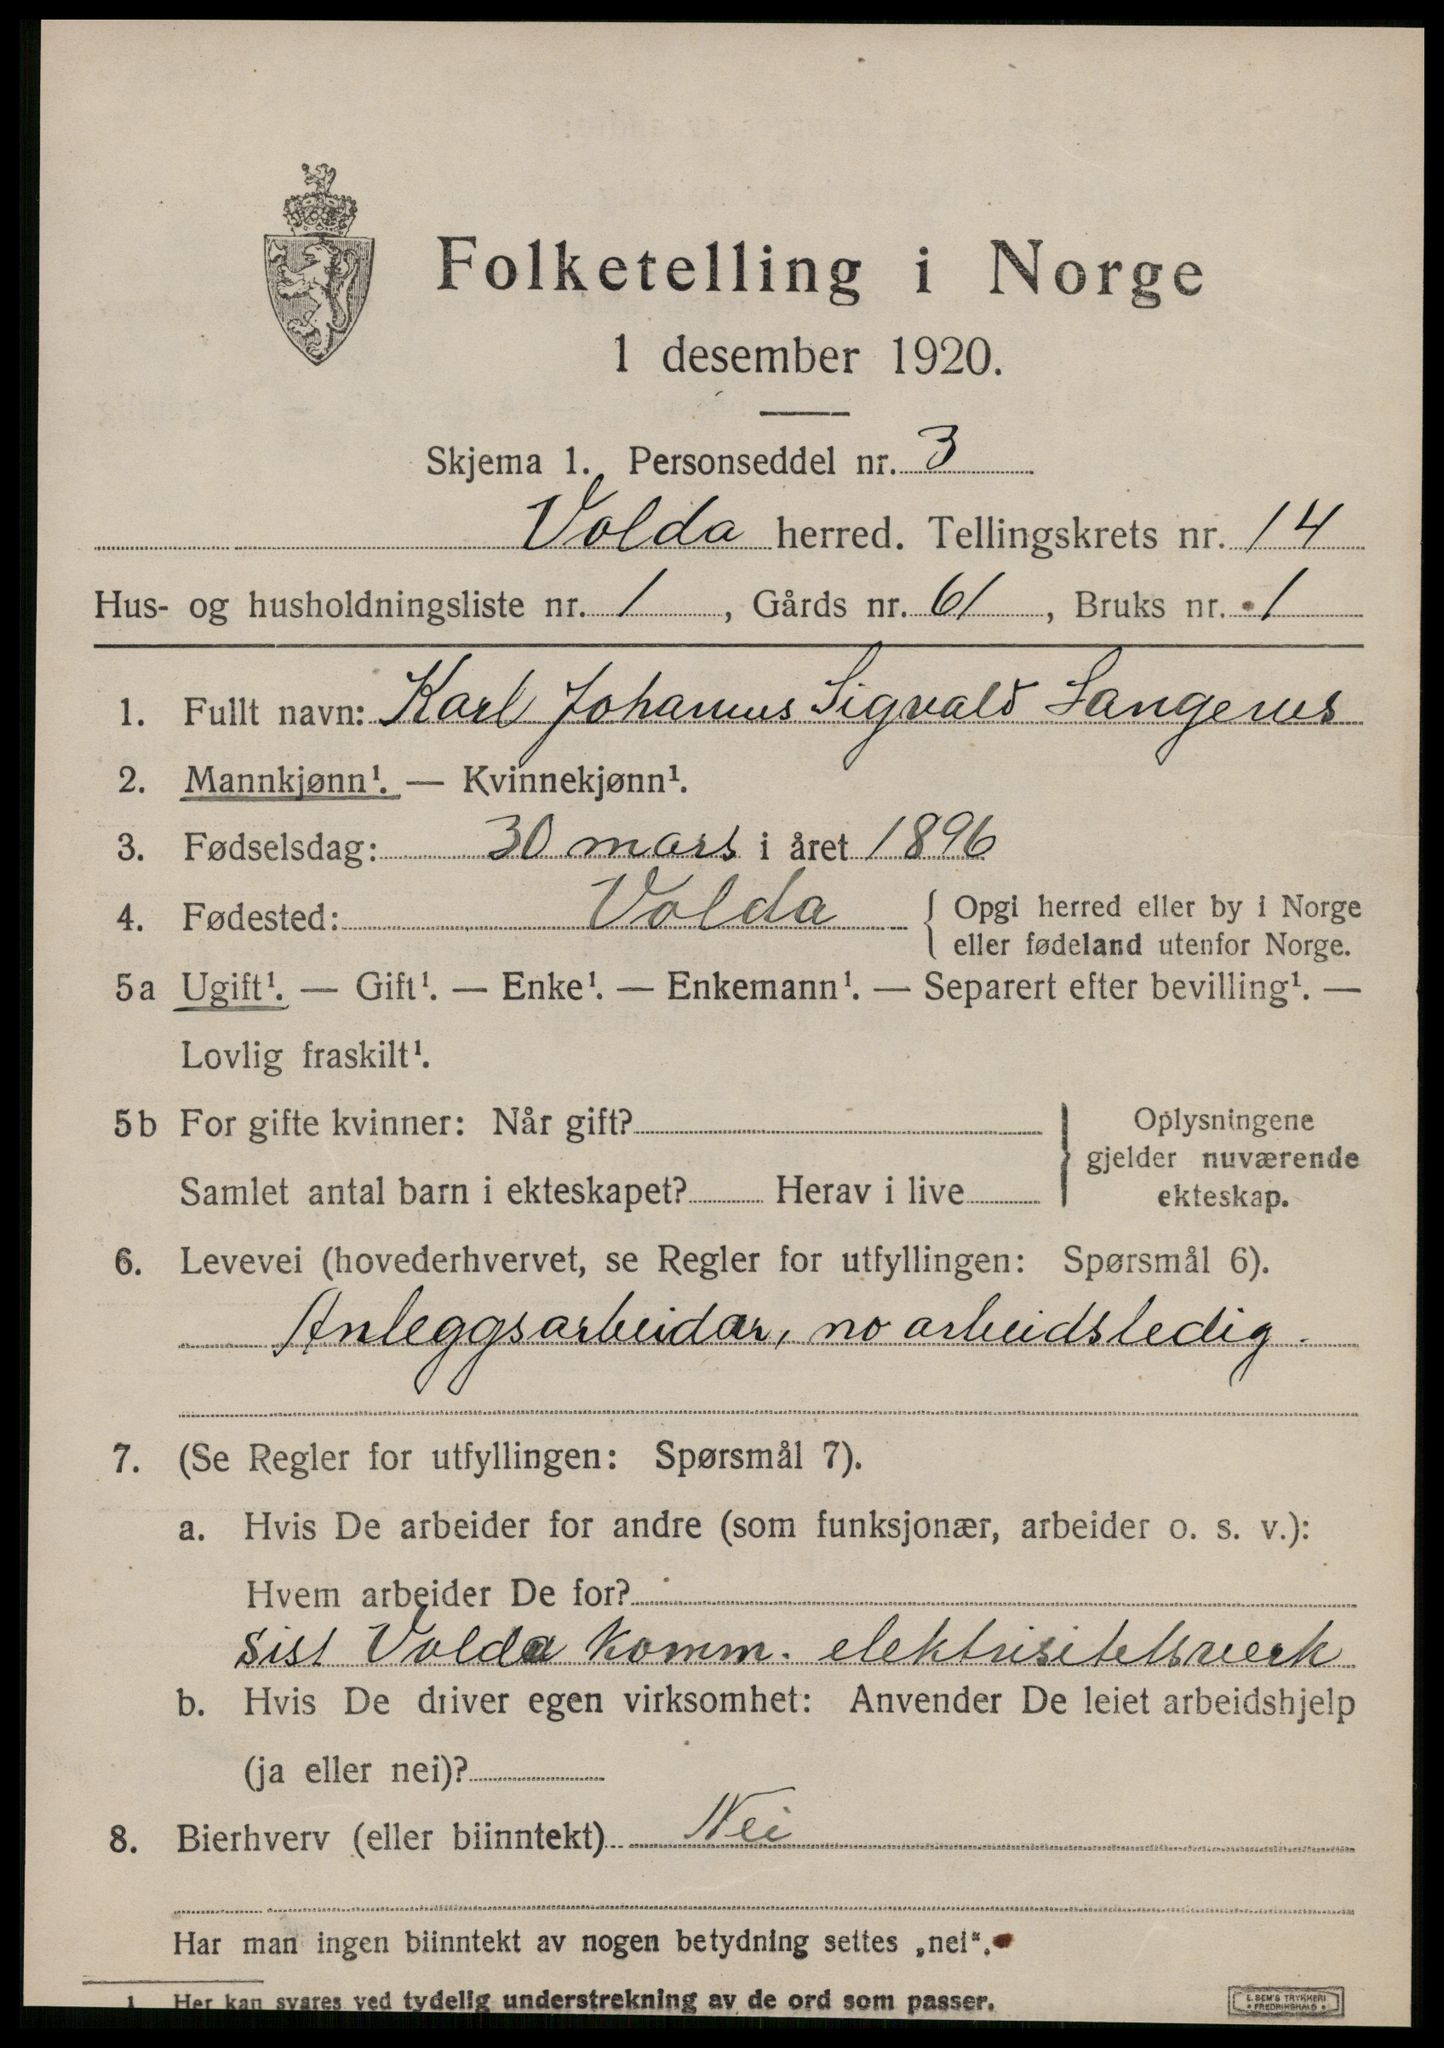 Folketelling i Norge
1 desember 1920.
Skjema 1. Personseddel nr. 3
Volda herred. Tellingskrets nr. 14
Hus- og husholdningsliste nr. 1, Gårds nr. 61, Bruks nr. 1
1. Fullt navn: Karl Johannes Sigvald Langenes
2. Mannkjønn¹. — Kvinnekjønn¹.
3. Fødselsdag: 30 mars i året 1896
4. Fødested: Volda { Opgi herred eller by i Norge
eller fødeland utenfor Norge.
5a Ugift¹. — Gift¹. — Enke¹. — Enkemann¹. — Separert efter bevilling¹. —
Lovlig fraskilt¹.
5b For gifte kvinner: Når gift?
Samlet antal barn i ekteskapet? Herav i live
} Oplysningene
gjelder nuværende
ekteskap.
6. Levevei (hovederhvervet, se Regler for utfyllingen: Spørsmål 6).
Anleggsarbeidar, no arbeidsledig.
7. (Se Regler for utfyllingen: Spørsmål 7).
a. Hvis De arbeider for andre (som funksjonær, arbeider o. s. v.):
Hvem arbeider De for?
sist Volda komm. elektrisitetsverk
b. Hvis De driver egen virksomhet: Anvender De leiet arbeidshjelp
(ja eller nei)?
8. Bierhverv (eller biinntekt) Nei
Har man ingen biinntekt av nogen betydning settes „nei“.
1 Her kan svares ved tydelig understrekning av de ord som passer.
E. SEM'S TRYKKERI
• FREDRIKSHALD •